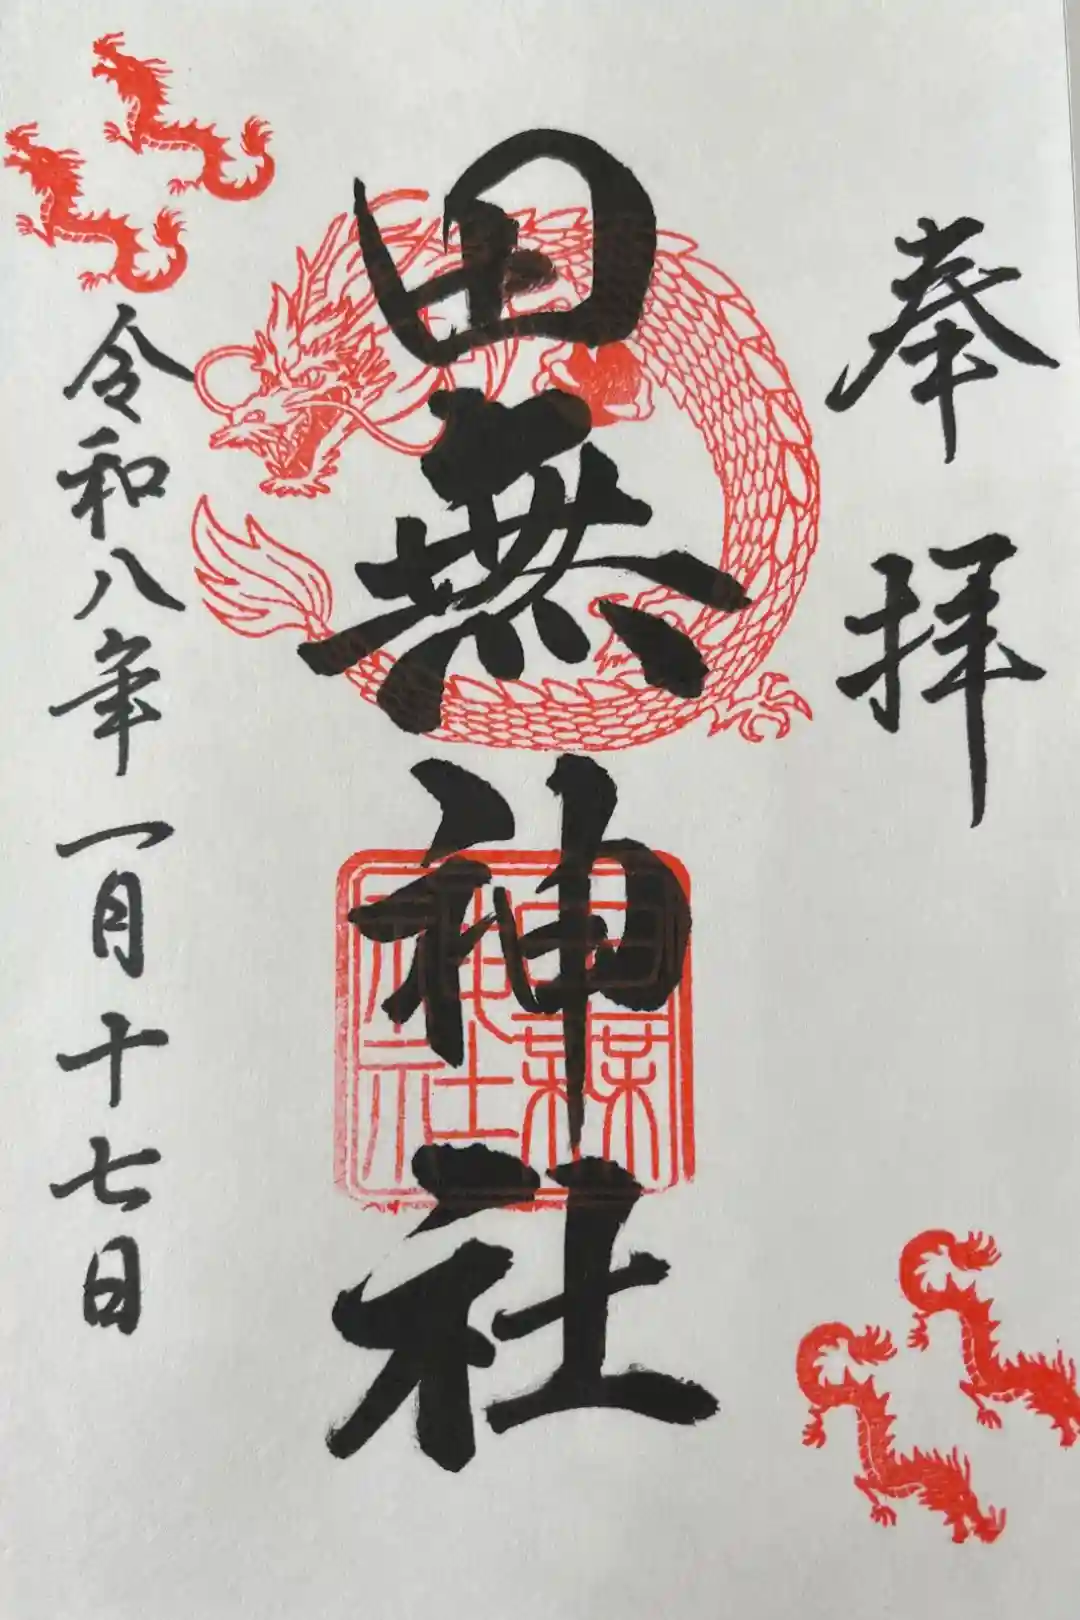 奉拝
田無神社
令和八年一月十七日
田無神社